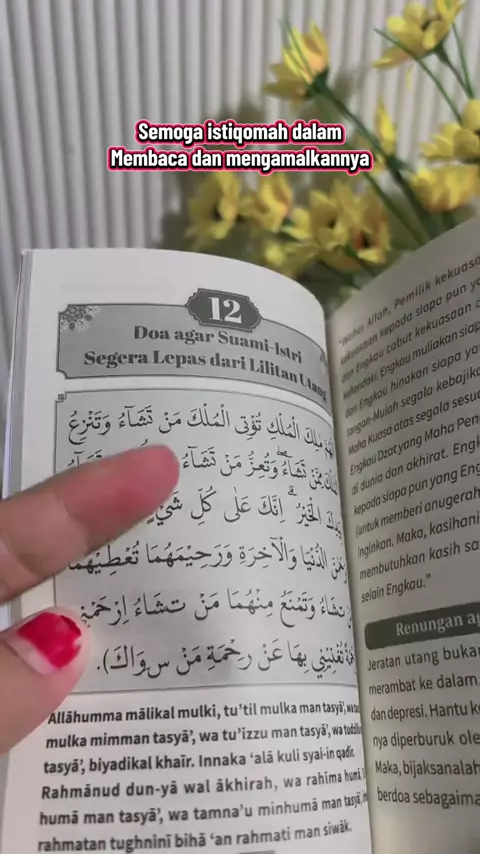 Semoga istiqomah dalam
Membaca dan mengamalkannya
12
Doa agar Suami-Istri
Segera Lepas dari Lilitan Utang
مٰلِكَ الْمُلْكِ تُؤْتِى الْمُلْكَ مَنْ تَشَاۤءُ وَتَنْزِعُ
مِمَّنْ تَشَاۤءُ وَتُعِزُّ مَنْ تَشَاۤءُ
الْخَيْرُ ۗ اِنَّكَ عَلٰى كُلِّ
الدُّنْيَا وَالْاٰخِرَةِ وَرَحِيْمَهُمَا تُعْطِيْهُمَا
تَشَاءُ وَتَمْنَعُ مِنْهُمَا مَنْ تَشَاءُ اِرْحَمْنِيْ
تُغْنِيْنِيْ بِهَا عَنْ رَحْمَةِ مَنْ سِوَاكَ).
Allāhumma mālikal mulki, tu'til mulka man tasyā', wa
mulka mimman tasyā', wa tu'izzu man tasyā', wa
tasyā', biyadikal khaīr. Innaka 'alā kuli syai-in qadīr.
Rahmānud dun-yā wal ākhirah, wa rahima humā
humā man tasyā', wa tamna'u minhumā man tasyā',
rahmatan tughninī bihā 'an rahmati man siwāk.
"Wahai Allah, Pemilik kekuasa
kekuasaan kepada siapa pun ya
dan Engkau cabut kekuasaan
kehendaki. Engkau muliakan siap
dan Engkau hinakan siapa ya
tangan-Mulah segala kebajik
Maha Kuasa atas segala sesu
Engkau Dzat yang Maha Pen
di dunia dan akhirat. Engk
kepada siapa pun yang Eng
(untuk memberi anugerah
inginkan. Maka, kasihani
membutuhkan kasih sa
selain Engkau."
Renungan a
Jeratan utang bukan
merambat ke dalam
dan depresi. Hantu k
nya diperburuk ole
Maka, bijaksanalah
berdoa sebagaima